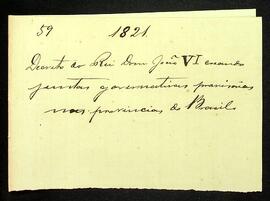 59 1821
Decreto do Rei Dom João VI creando
juntas governativas provisorias
nas provincias do Brasil